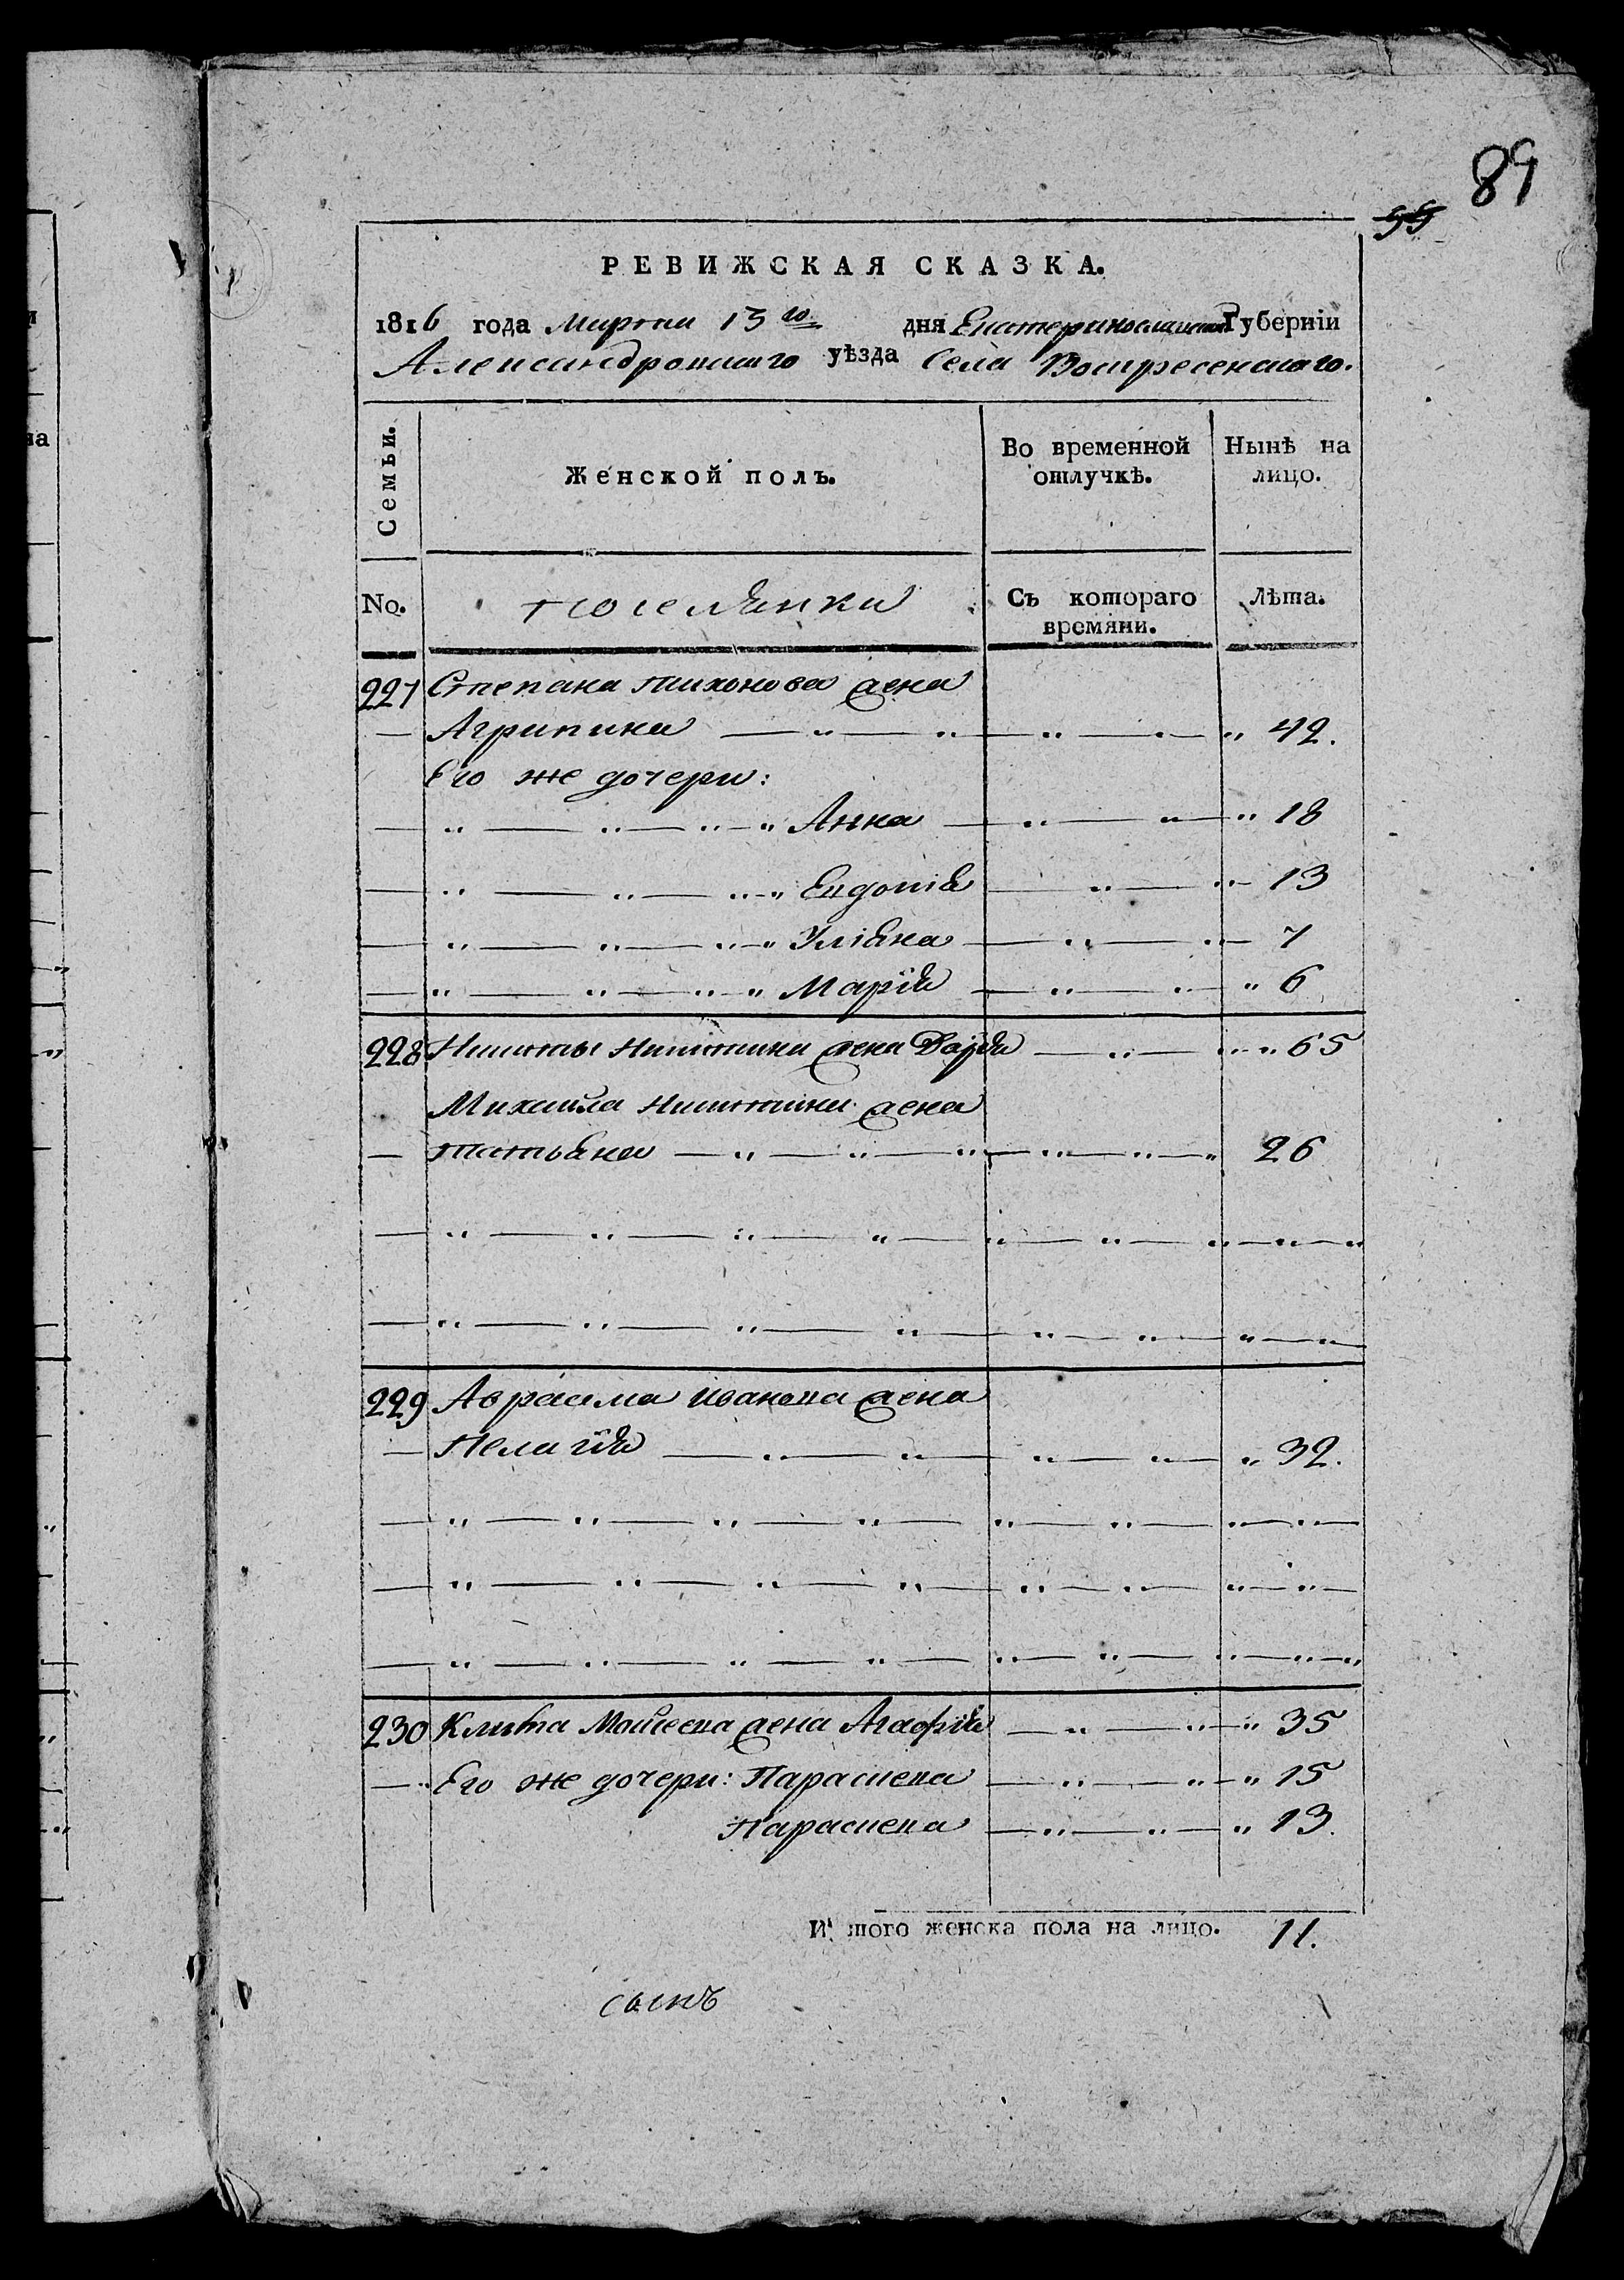 89
55
РЕВИЖСКАЯ СКАЗКА.
1816 года Марта 13го дня Екатеринославской Губерніи
Александровскаго уѣзда Села Воскресенскаго.
Семьи.
Женской полъ.
Во временной отлучкѣ.
Нынѣ на лицо.
No.
поселянки
Съ котораго времяни.
Лѣта.
227 Степана Тихонова жена
— Агрипина — " — " — " — " — " 42.
Его же дочери:
— " — " — " — " Анна — " — " — " 18
— " — " — " — " Евдокія — " — " — 13
— " — " — " — " Уліяна — " — " — 7
— " — " — " — " Марія — " — " — " 6
228 Никиты Никитина жена Дарья — " — " — " 65
Михаила Никитина жена
— Татьяна — " — " — " — " — " — " 26
— " — " — " — " — " — " — " — " — "
— " — " — " — " — " — " — " — "
229 Аврама Иванова жена
— Пелагія — " — " — " — " — " 32.
— " — " — " — " — " — " — " — " —
— " — " — " — " — " — " — " — " —
— " — " — " — " — " — " — " — " — "
230 Клима Моисеева жена Агафія — " — " — " 35
— " Его же дочери: Параскева — " — " — " 15
Параскева — " — " — " 13.
И того женска пола на лицо. 11.
сынъ
на